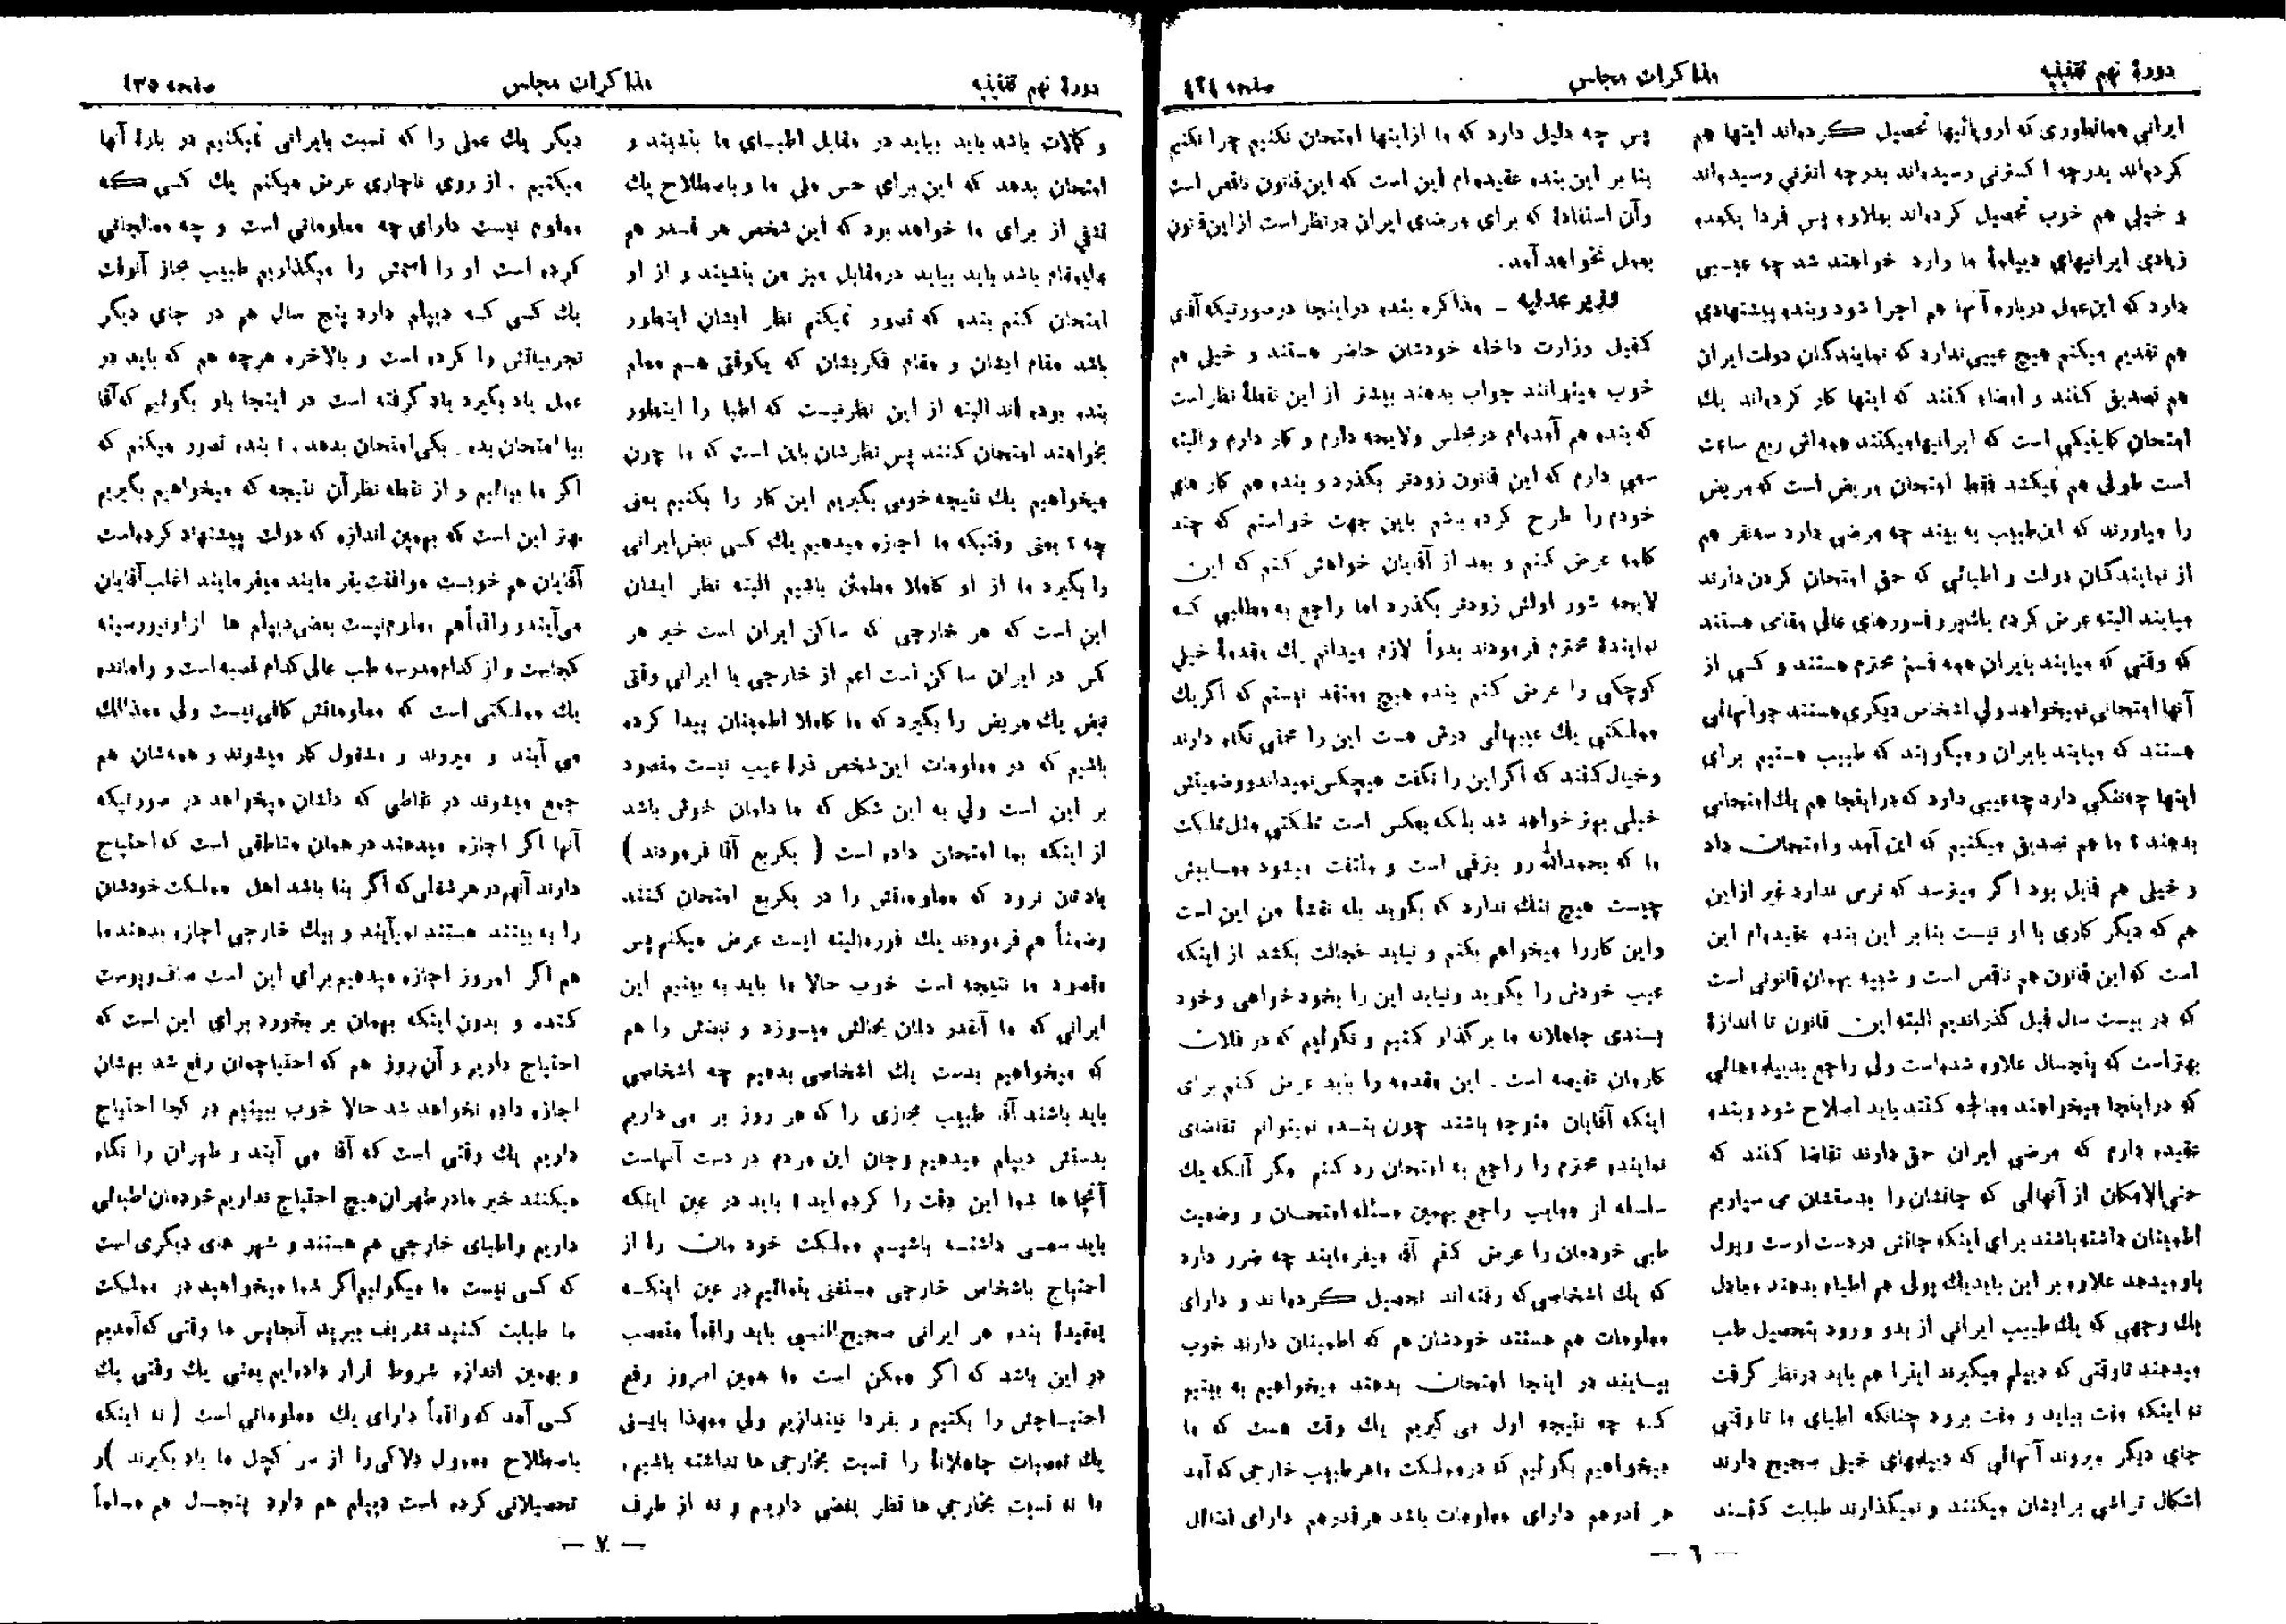 دورهٔ نهم تقنینیه
مذاکرات مجلس
صفحه
ایرانی همانطوری که اروپائیها تحصیل کرده‌اند اینها هم
کرده‌اند بدرجه اکسترنی رسیده‌اند بدرجه انترنی رسیده‌اند
و خیلی هم خوب تحصیل کرده‌اند بعلاوه پس فردا یکعده
زیادی ایرانیهای دیپلمهٔ ما وارد خواهند شد چه عیبی
دارد که این عمل درباره آنها هم اجرا شود و بنده پیشنهادی
هم تقدیم میکنم هیچ عیبی ندارد که نمایندگان دولت ایران
هم تصدیق کنند و امضاء کنند که اینها کار کرده‌اند یك
امتحان کلینیکی است که ایرانیها میکنند همه‌اش ربع ساعت
است طولی هم نمیکشد فقط امتحان مریض است که مریض
را میاورند که این طبیب به بیند چه مرضی دارد سه نفر هم
از نمایندگان دولت و اطبائی که حق امتحان کردن دارند
میایند البته عرض کردم یك پروفسورهای عالی مقامی هستند
که وقتی که میایند بایران همه قسم محترم هستند و کسی از
آنها امتحانی نمیخواهد ولی اشخاص دیگری هستند جوانهائی
هستند که میایند بایران و میگویند که طبیب هستیم برای
اینها چه ننگی دارد چه عیبی دارد که در اینجا هم یك امتحانی
بدهند ؟ ما هم تصدیق میکنیم که این آمد و امتحان داد
و خیلی هم قابل بود اگر میترسد که ترس ندارد غیر از این
هم که دیگر کاری با او نیست بنا بر این بنده عقیده‌ام این
است که این قانون هم ناقص است و شبیه بهمان قانونی است
که در بیست سال قبل گذراندیم البته این قانون تا اندازهٔ
بهتر است که پنجسال علاوه شده است ولی راجع بدیپلمه‌هائی
که در اینجا میخواهند معالجه کنند باید اصلاح شود و بنده
عقیده دارم که مرضی ایران حق دارند تقاضا کنند که
حتی‌الامکان از آنهائی که جانشان را بدستشان می سپاریم
اطمینان داشته باشند برای اینکه جانش در دست اوست و پول
باو میدهد علاوه بر این باید یك پولی هم اطباء بدهند معادل
یك وجهی که یك طبیب ایرانی از بدو ورود بتحصیل طب
میدهند تا وقتی که دیپلم میگیرند اینرا هم باید در نظر گرفت
نه اینکه مفت بیاید و مفت برود چنانکه اطبای ما تا وقتی
جای دیگر میروند آنهائی که دیپلمهای خیلی صحیح دارند
اشکال تراشی برایشان میکنند و نمیگذارند طبابت کنند
پس چه دلیل دارد که ما از اینها امتحان نکنیم چرا نکنیم
بنا بر این بنده عقیده‌ام این است که این قانون ناقص است
و آن استفادهٔ که برای مرضای ایران در نظر است از این قانون
بعمل نخواهد آمد.
وزیر عدلیه ـ مذاکره بنده در اینجا در صورتیکه آقای
کفیل وزارت داخله خودشان حاضر هستند و خیلی هم
خوب میتوانند جواب بدهند بیشتر از این نقطهٔ نظر است
که بنده هم آمده‌ام در مجلس و لایحه دارم و کار دارم و البته
سعی دارم که این قانون زودتر بگذرد و بنده هم کار های
خودم را طرح کرده باشم باین جهت خواستم که چند
کلمه عرض کنم و بعد از آقایان خواهش کنم که این
لایحه شور اولش زودتر بگذرد اما راجع به مطالبی که
نمایندهٔ محترم فرمودند بدواً لازم میدانم یك مقدمهٔ خیلی
کوچکی را عرض کنم بنده هیچ معتقد نیستم که اگر یك
مملکتی یك عیبهائی درش هست این را مخفی نگاه دارند
و خیال کنند که اگر این را نگفت هیچکس نمیداند و وضعیتش
خیلی بهتر خواهد شد بلکه بعکس است مملکتی مثل مملکت
ما که بحمدالله رو بترقی است و ملتفت میشود معایبش
چیست هیچ ننگ ندارد که بگوید بله نقشهٔ من این است
و این کار را میخواهم بکنم و نباید خجالت بکشد از اینکه
عیب خودش را بگوید و نباید این را بخود خواهی و خود
پسندی جاهلانه ما بر گذار کنیم و نگوئیم که در فلان
کارمان نقیصه است . این مقدمه را باید عرض کنم برای
اینکه آقایان متوجه باشند چون بنده نمیتوانم تقاضای
نماینده محترم را راجع به امتحان رد کنم مگر آنکه یك
سلسله از معایب راجع بهمین مسئله امتحان و وضعیت
طبی خودمان را عرض کنم آقا میفرمایند چه ضرر دارد
که یك اشخاصی که رفته‌اند تحصیل کرده‌اند و دارای
معلومات هم هستند خودشان هم که اطمینان دارند خوب
بیایند در اینجا امتحان بدهند میخواهیم به بینیم
که چه نتیجه اول می گیریم یك وقت هست که ما
میخواهیم بگوئیم که در مملکت ما هر طبیب خارجی که آمد
هر قدر هم دارای معلومات باشد هر قدر هم دارای افضال
— ٦ —
دورهٔ نهم تقنینیه
مذاکرات مجلس
صفحه ١٣٥
و کمالات باشد باید بیاید در مقابل اطبای ما بنشیند و
امتحان بدهد که این برای حس ملی ما و باصطلاح یك
تشفی از برای ما خواهد بود که این شخص هر قدر هم
عالیمقام باشد باید بیاید در مقابل میز من بنشیند و از او
امتحان کنم بنده که تصور نمیکنم نظر ایشان اینطور
باشد مقام ایشان و مقام فکریشان که یکوقتی هم معلم
بنده بوده اند البته از این نظر نیست که اطبا را اینطور
بخواهند امتحان کنند پس نظرشان باین است که ما چون
میخواهیم یك نتیجه خوبی بگیریم این کار را بکنیم یعنی
چه ؟ یعنی وقتیکه ما اجازه میدهیم یك کسی نبض ایرانی
را بگیرد ما از او کاملا مطمئن باشیم البته نظر ایشان
این است که هر خارجی که ساکن ایران است خیر هر
کس در ایران ساکن است اعم از خارجی یا ایرانی وقتی
نبض یك مریض را بگیرد که ما کاملا اطمینان پیدا کرده
باشیم که در معلومات این شخص ذرهٔ عیب نیست مقصود
بر این است ولی به این شکل که ما دلمان خوش باشد
از اینکه بما امتحان داده است ( یکربع آقا فرمودند )
یادتان نرود که معلوماتش را در یکربع امتحان کنند
و ضمناً هم فرمودند یك فورمالیته ایست عرض میکنم پس
مقصود ما نتیجه است خوب حالا ما باید به بینیم این
ایرانی که ما آنقدر دلمان بحالش میسوزد و نبضش را هم
که میخواهیم بدست یك اشخاصی بدهیم چه اشخاصی
باید باشند آقا طبیب مجازی را که هر روز بر می داریم
بدستش دیپلم میدهیم و جان این مردم در دست آنهاست
آنجا ها شما این دقت را کرده اید ؟ باید در عین اینکه
باید سعی داشته باشیم مملکت خود مان را از
احتیاج باشخاص خارجی مستغنی بنمائیم در عین اینکه
بعقیدهٔ بنده هر ایرانی صحیح‌النسبی باید واقعاً متعصب
در این باشد که اگر ممکن است ما همین امروز رفع
احتیاجش را بکنیم و بفردا نیندازیم ولی معهذا بایستی
یك تعصبات جاهلانهٔ را نسبت بخارجی ها نداشته باشیم ،
ما نه نسبت بخارجی ها نظر بغضی داریم و نه از طرف
دیگر یك عملی را که نسبت بایرانی نمیکنیم در بارهٔ آنها
میکنیم . از روی ناچاری عرض میکنم یك کسی که
معلوم نیست دارای چه معلوماتی است و چه معالجاتی
کرده است او را اسمش را میگذاریم طبیب مجاز آنوقت
یك کسی که دیپلم دارد پنج سال هم در جای دیگر
تجربیاتش را کرده است و بالاخره هرچه هم که باید در
عمل یاد بگیرد یاد گرفته است در اینجا باو بگوئیم که آقا
بیا امتحان بده . یکی امتحان بدهد . ؟ بنده تصور میکنم که
اگر ما بیائیم و از نقطه نظر آن نتیجه که میخواهیم بگیریم
بهتر این است که بهمین اندازه که دولت پیشنهاد کرده است
آقایان هم خوبست موافقت بفرمایند میفرمایند اغلب آقایان
می‌آیند و واقعاً هم معلوم نیست بعضی دیپلم ها از اونیورسیته
کجاست و از کدام مدرسه طب عالی کدام قصبه است و وامانده
یك مملکتی است که معلوماتش کافی نیست ولی معذالك
می آیند و میروند و مشغول کار میشوند و همه‌شان هم
جمع میشوند در نقاطی که دلشان میخواهد در صورتیکه
آنها اگر اجازه میدهند در همان مناطقی است که احتیاج
دارند آنهم در هر شغلی که اگر بنا باشد اهل مملکت خودشان
را به بینند هستند نمیآیند و بیك خارجی اجازه بدهند ما
هم اگر امروز اجازه میدهیم برای این است صاف و پوست
کنده و بدون اینکه بهمان بر بخورد برای این است که
احتیاج داریم و آن روز هم که احتیاجمان رفع شد بهشان
اجازه داده نخواهد شد حالا خوب ببینیم در کجا احتیاج
داریم یك وقتی است که آقا می آیند و طهران را نگاه
میکنند خیر ما در طهران هیچ احتیاج نداریم خودمان اطبائی
داریم و اطبای خارجی هم هستند و شهر های دیگری است
که کسی نیست ما میگوئیم اگر شما میخواهید در مملکت
ما طبابت کنید تشریف ببرید آنجا پس ما وقتی که آمدیم
و بهمین اندازه شروط قرار داده‌ایم یعنی یك وقتی یك
کسی آمد که واقعاً دارای یك معلوماتی است ( نه اینکه
باصطلاح معمول دلاکی را از سر کچل ما یاد بگیرند ) و
تحصیلاتی کرده است دیپلم هم دارد پنجسال هم مسلماً
— ٧ —